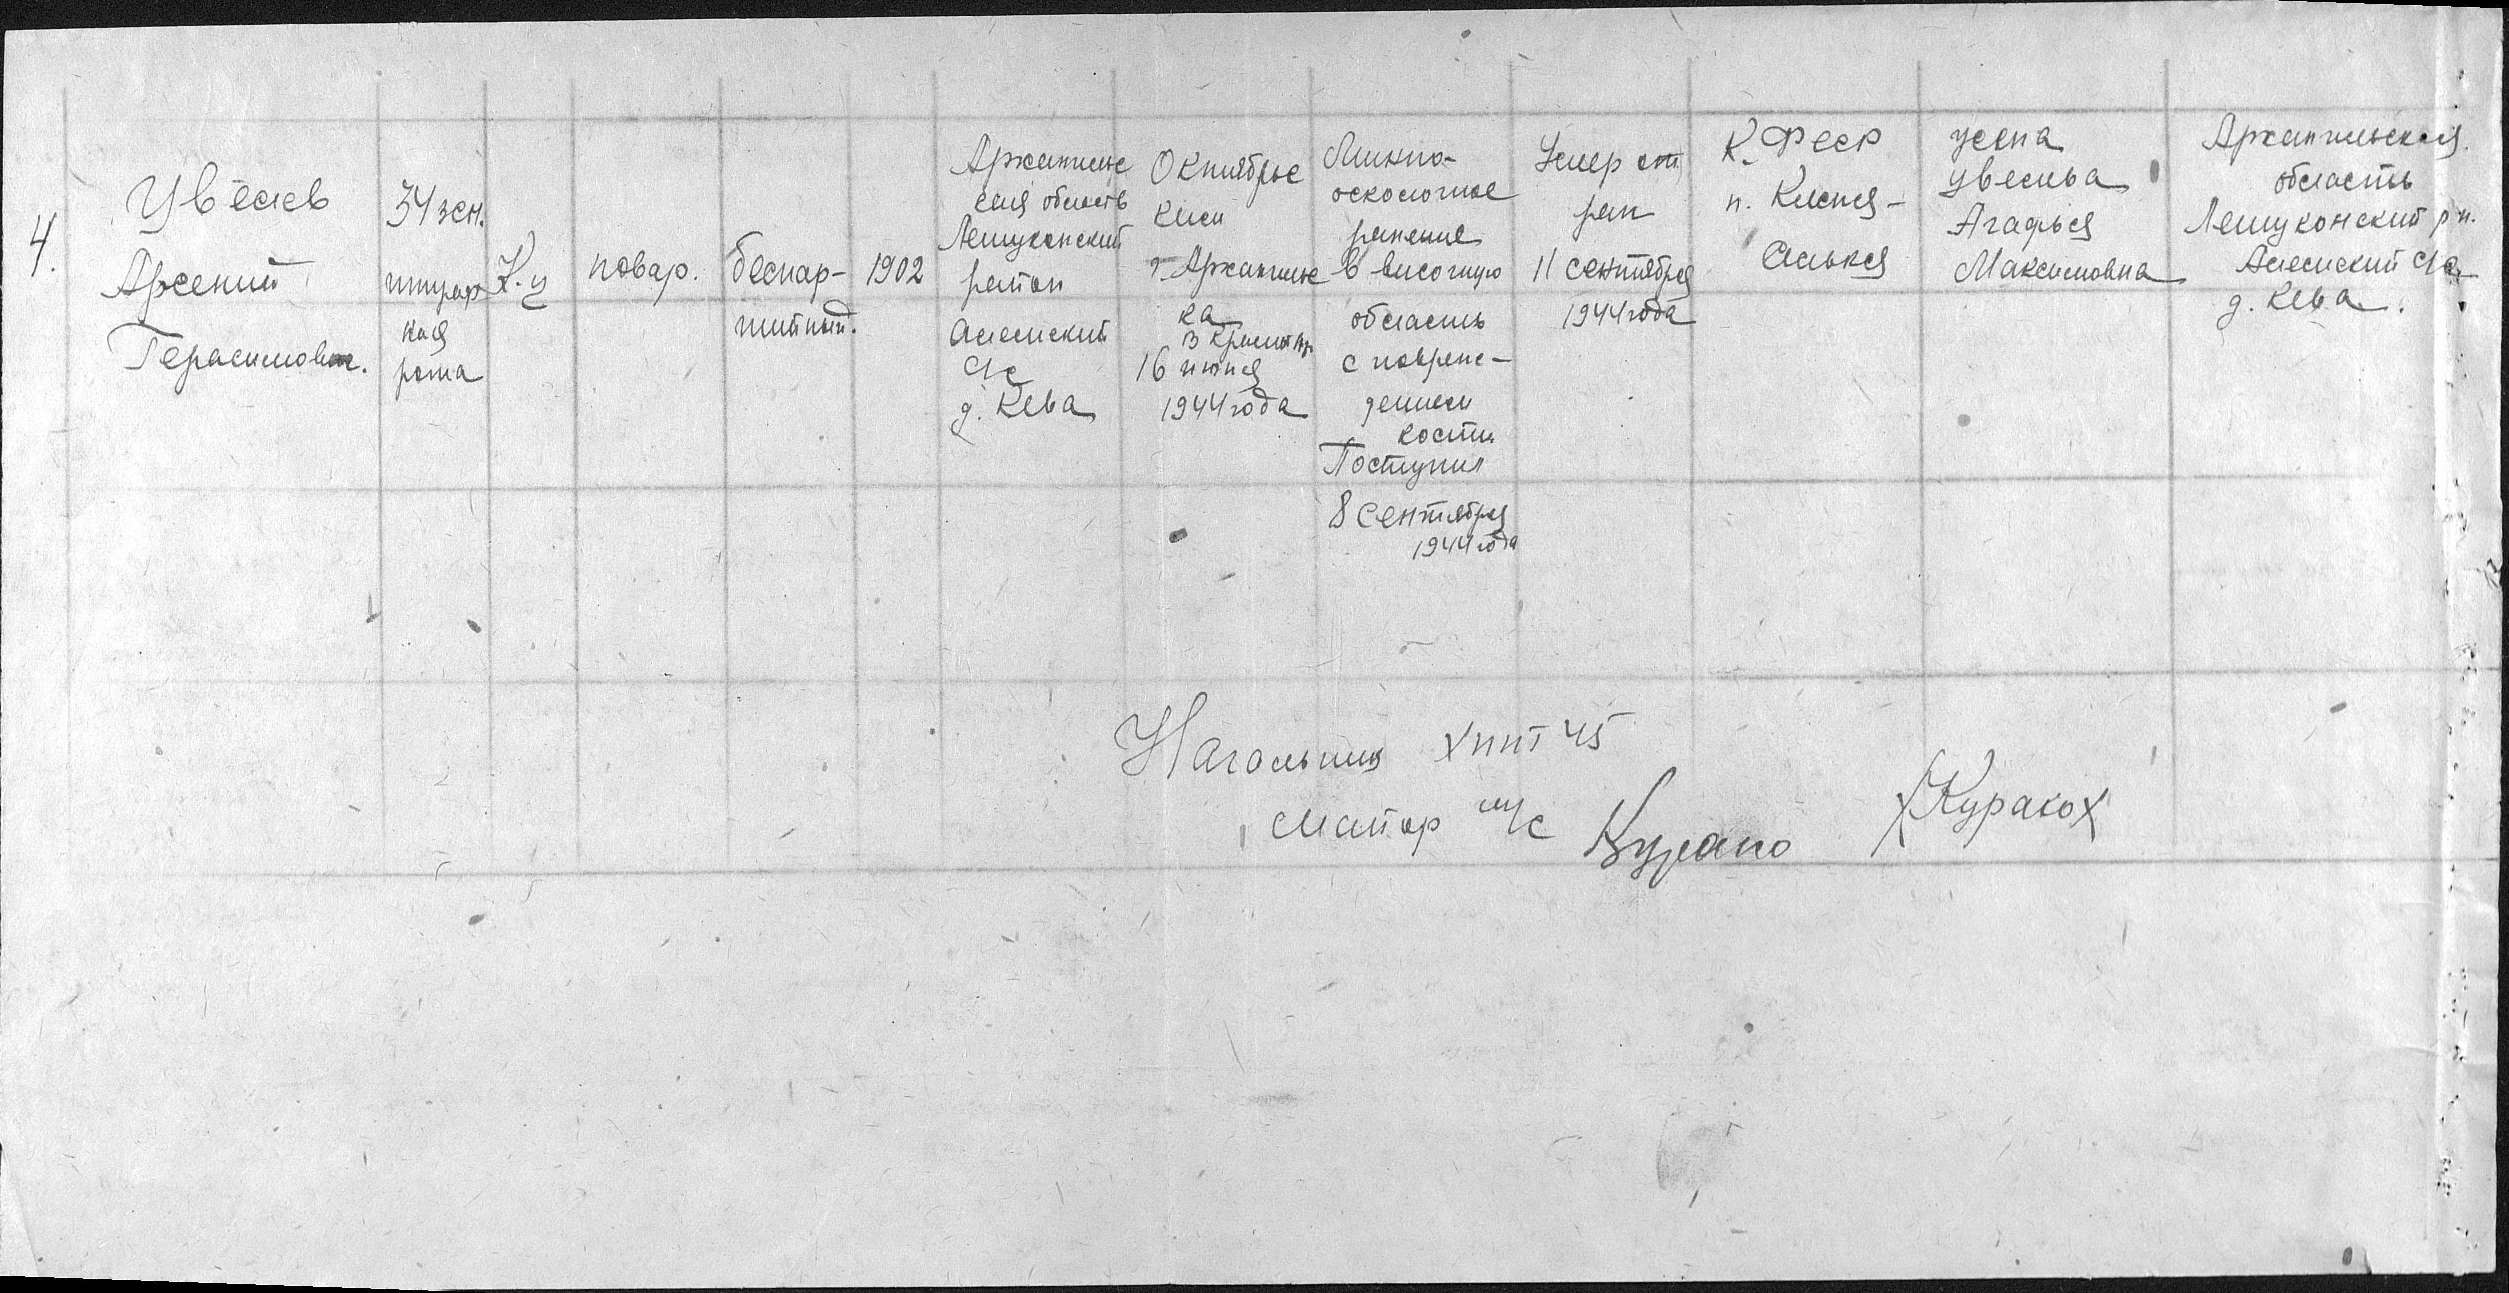 4.
Цвелев
Арсений
Герасимович.
34 зсн.
штраф
ная
рота
К-ц
повар.
беспар-
тийный.
1902
Архангельс
кая область
Лешуконский
район
с/с
д. Кева
Октябрьс
ким
г. Архангельс
ка
16 июня
1944 года
Минно-
осколочное
ранение
в височную
область
с повреж-
дением
кости
Поступил
8 сентября
1944 года
Умер от
ран
11 сентября
1944 года
К.ФССР
п. Кясня-
Селькя
жена
Цвелева
Агафья
Максимовна
Архангельская
область
Лешуконский р-н.
с/с
д. Кева.
Начальник ХППГ 45
Майор м/с Курако /Курако/